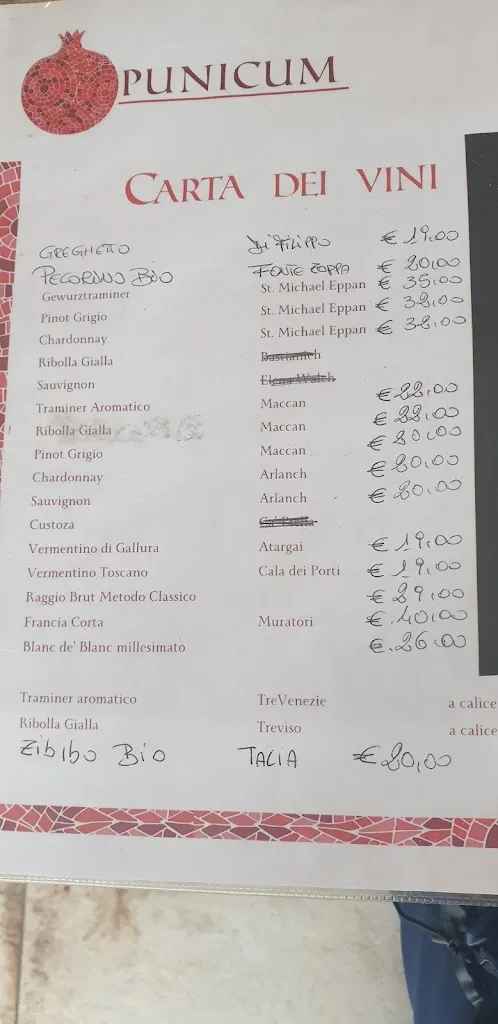 PUNICUM
CARTA DEI VINI
GREGHETTO Di Filippo € 19,00
PECORINO BIO FONTE ZOPPA € 20,00
Gewurztraminer St. Michael Eppan € 35,00
Pinot Grigio St. Michael Eppan € 38,00
Chardonnay St. Michael Eppan € 38,00
Ribolla Gialla Bastianich
Sauvignon Elena Walch
Traminer Aromatico Maccan € 22,00
Ribolla Gialla Maccan € 22,00
Pinot Grigio Maccan € 20,00
Chardonnay Arlanch € 20,00
Sauvignon Arlanch € 20,00
Custoza
Vermentino di Gallura Atargai € 19,00
Vermentino Toscano Cala dei Porti € 19,00
Raggio Brut Metodo Classico € 29,00
Francia Corta Muratori €. 40,00
Blanc de' Blanc millesimato €. 26,00
Traminer aromatico TreVenezie a calice
Ribolla Gialla Treviso a calice
Zibibo Bio TALIA € 20,00